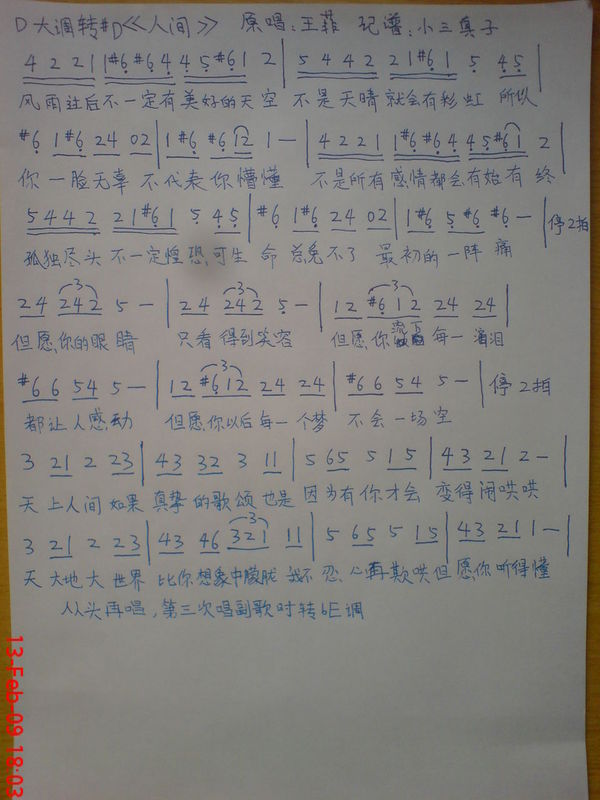 D大调转#D≪人间≫ 原唱:王菲 记谱:小三真子
4 2 2 1 1 #6 #6 4 4 5 #6 1 2 | 5 4 4 2 2 1 #6 1 5 4 5 |
风雨过后不一定有美好的天空 不是天晴就会有彩虹 所以
#6 1 #6 24 02 | 1 #6 #6 12 1 — | 4 2 2 1 1 #6 #6 4 4 5 #6 1 2 |
你一脸无辜 不代表你懵懂 不是所有感情都会有始有终
5 4 4 2 2 1 #6 1 5 4 5 | #6 1 #6 24 02 | 1 #6 5 #6 #6 — | 停2拍
孤独尽头 不一定惶恐 可生 命总免不了 最初的一阵 痛
3 3 3
2 4 2 4 2 5 — | 2 4 2 4 2 5 — | 1 2 #6 1 2 24 24 |
但愿你的眼睛 只看得到笑容 但愿你流下每一滴泪
3
#6 6 54 5 — | 12 #6 12 24 24 | #6 6 54 5 — | 停2拍
都让人感动 但愿你以后每一个梦 不会一场空
3 21 2 23 | 43 32 3 11 | 5 65 5 1 5 | 43 21 2 — |
天上人间 如果真挚的歌颂也是 因为有你才会 变得闹哄哄
3
3 21 2 23 | 43 46 321 11 | 5 65 5 15 | 43 21 1 — |
天大地大 世界 比你想象中朦胧 我不忍心再欺哄 但愿你听得懂
从头再唱,第三次唱副歌时转bE调
13-Feb-09 18:03